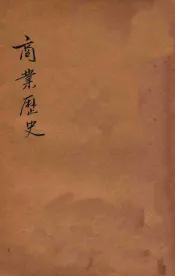 商業歷史